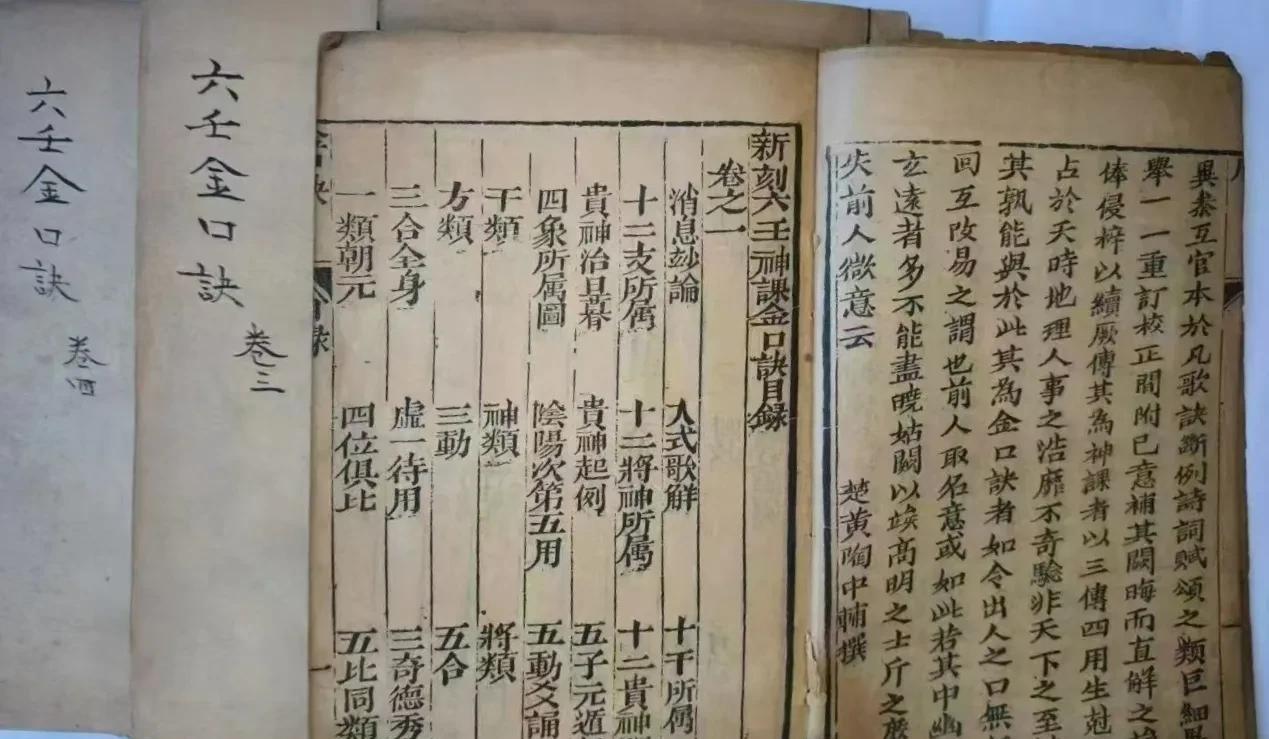 異泰互官本於凡歌訣斷例詩詞賦頌之類巨細
舉一一重訂校正間附已意補其闕晦而直解之
俸侵梓以續厥傳其為神課者以三傳四用生尅
占於天時地理人事之浩靡不奇驗非天下之至
其孰能與於此其為金口訣者如令出人之口無
回互攺易之謂也前人取名意或如此若其中幽
玄遠者多不能盡曉姑闕以竢高明之士斤之
失前人微意云 楚黃陶中輔撰
新刻六壬神課金口訣目錄
卷之一
消息玅論 入式歌觧 十干所属
十二支所属 十二將神所属 十二貴神
貴神治旦暮 貴神起例 五子元遁
四象所属圖 陰陽次第五用 五動爻誦
干類 神類 將類
方類 三動 五合
三合全身 虛一待用 三奇德秀
一類朝元 四位俱比 五比同類
六壬金口訣 卷三
六壬金口訣 卷四